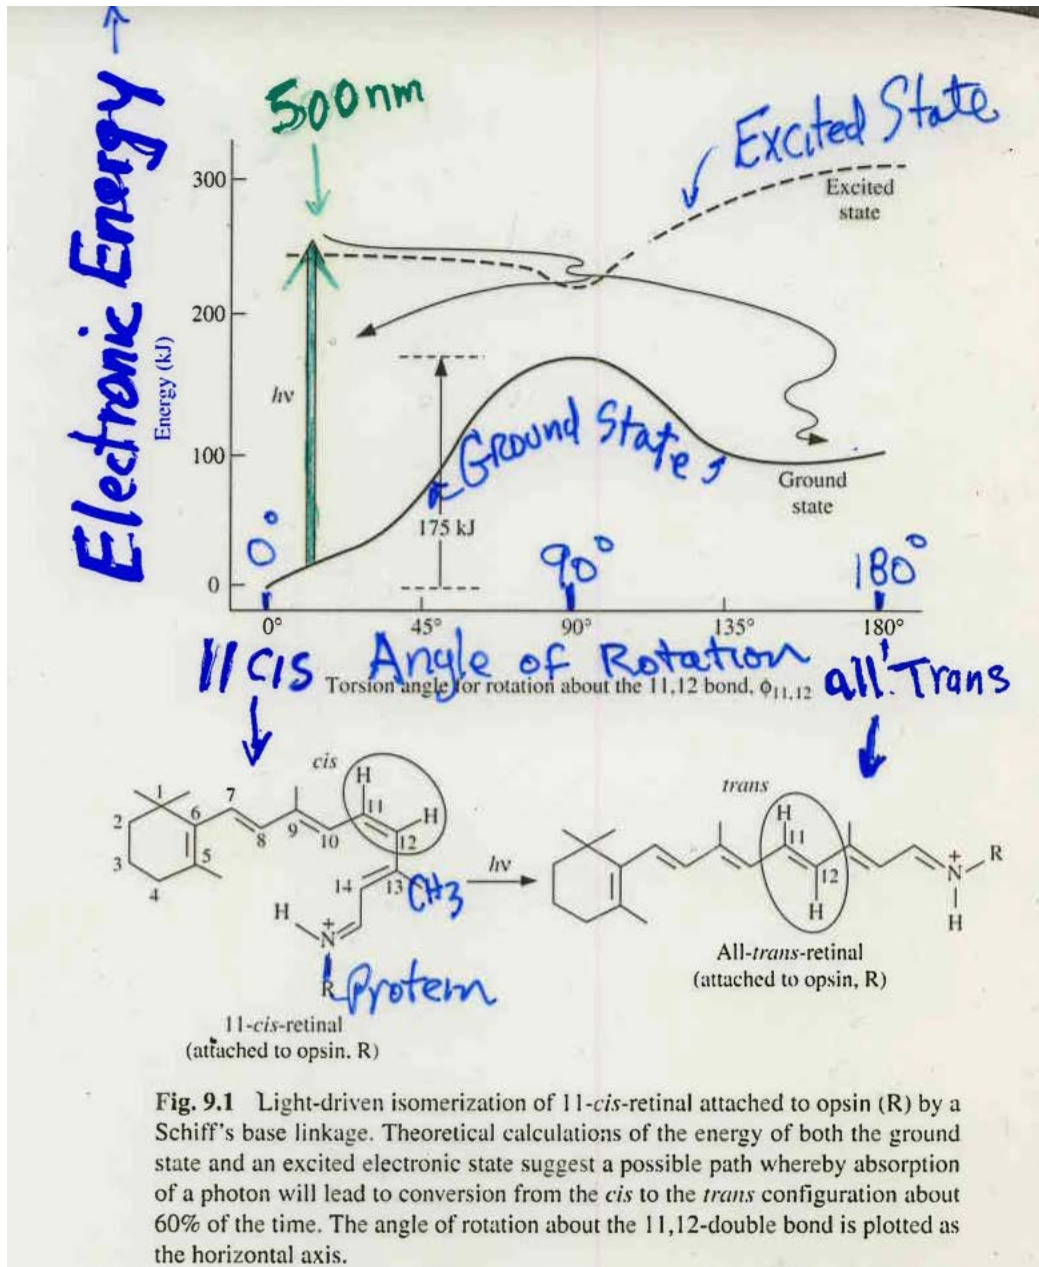 Electronic Energy →
500nm
Excited State
300
Excited
state
Energy (kJ)
200
hν
100
Ground State
Ground
state
175 kJ
0°
90°
180°
0
0°
45°
90°
135°
180°
11 cis
Angle of Rotation
all Trans
Torsion angle for rotation about the 11,12 bond, ϕ11,12
cis
H
1
7
11
H
2
6
9
8
10
12
3
5
4
14
13
CH3
H
+
N
R
Protein
11-cis-retinal
(attached to opsin. R)
hν
trans
H
11
12
H
+
N
R
H
All-trans-retinal
(attached to opsin, R)
Fig. 9.1 Light-driven isomerization of 11-cis-retinal attached to opsin (R) by a
Schiff's base linkage. Theoretical calculations of the energy of both the ground
state and an excited electronic state suggest a possible path whereby absorption
of a photon will lead to conversion from the cis to the trans configuration about
60% of the time. The angle of rotation about the 11,12-double bond is plotted as
the horizontal axis.